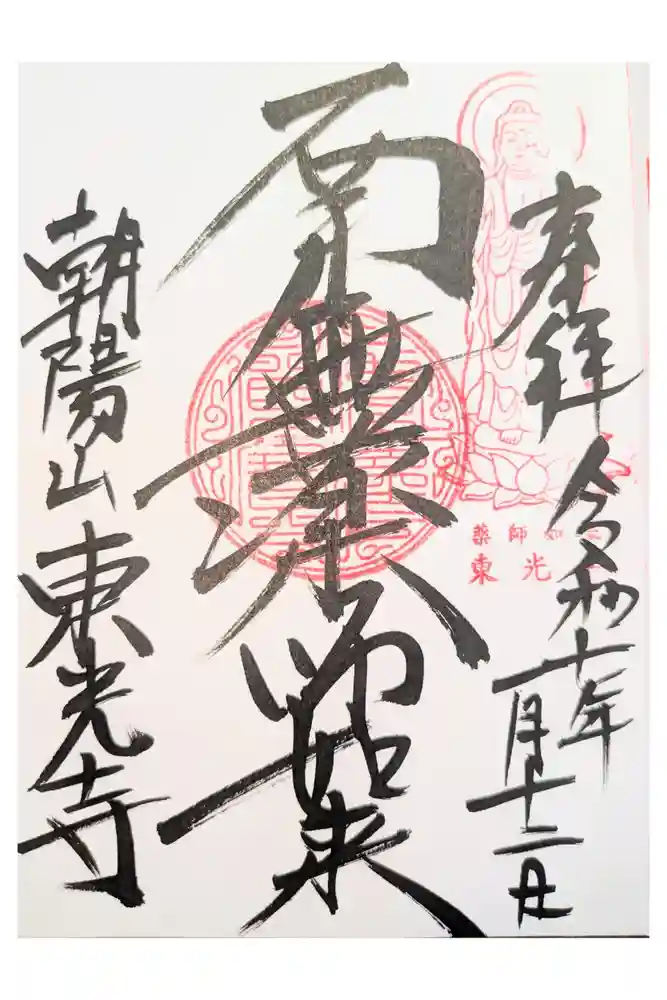 奉拝 令和七年
一月十二日
南無薬師如来
朝陽山 東光寺
薬師如
東光